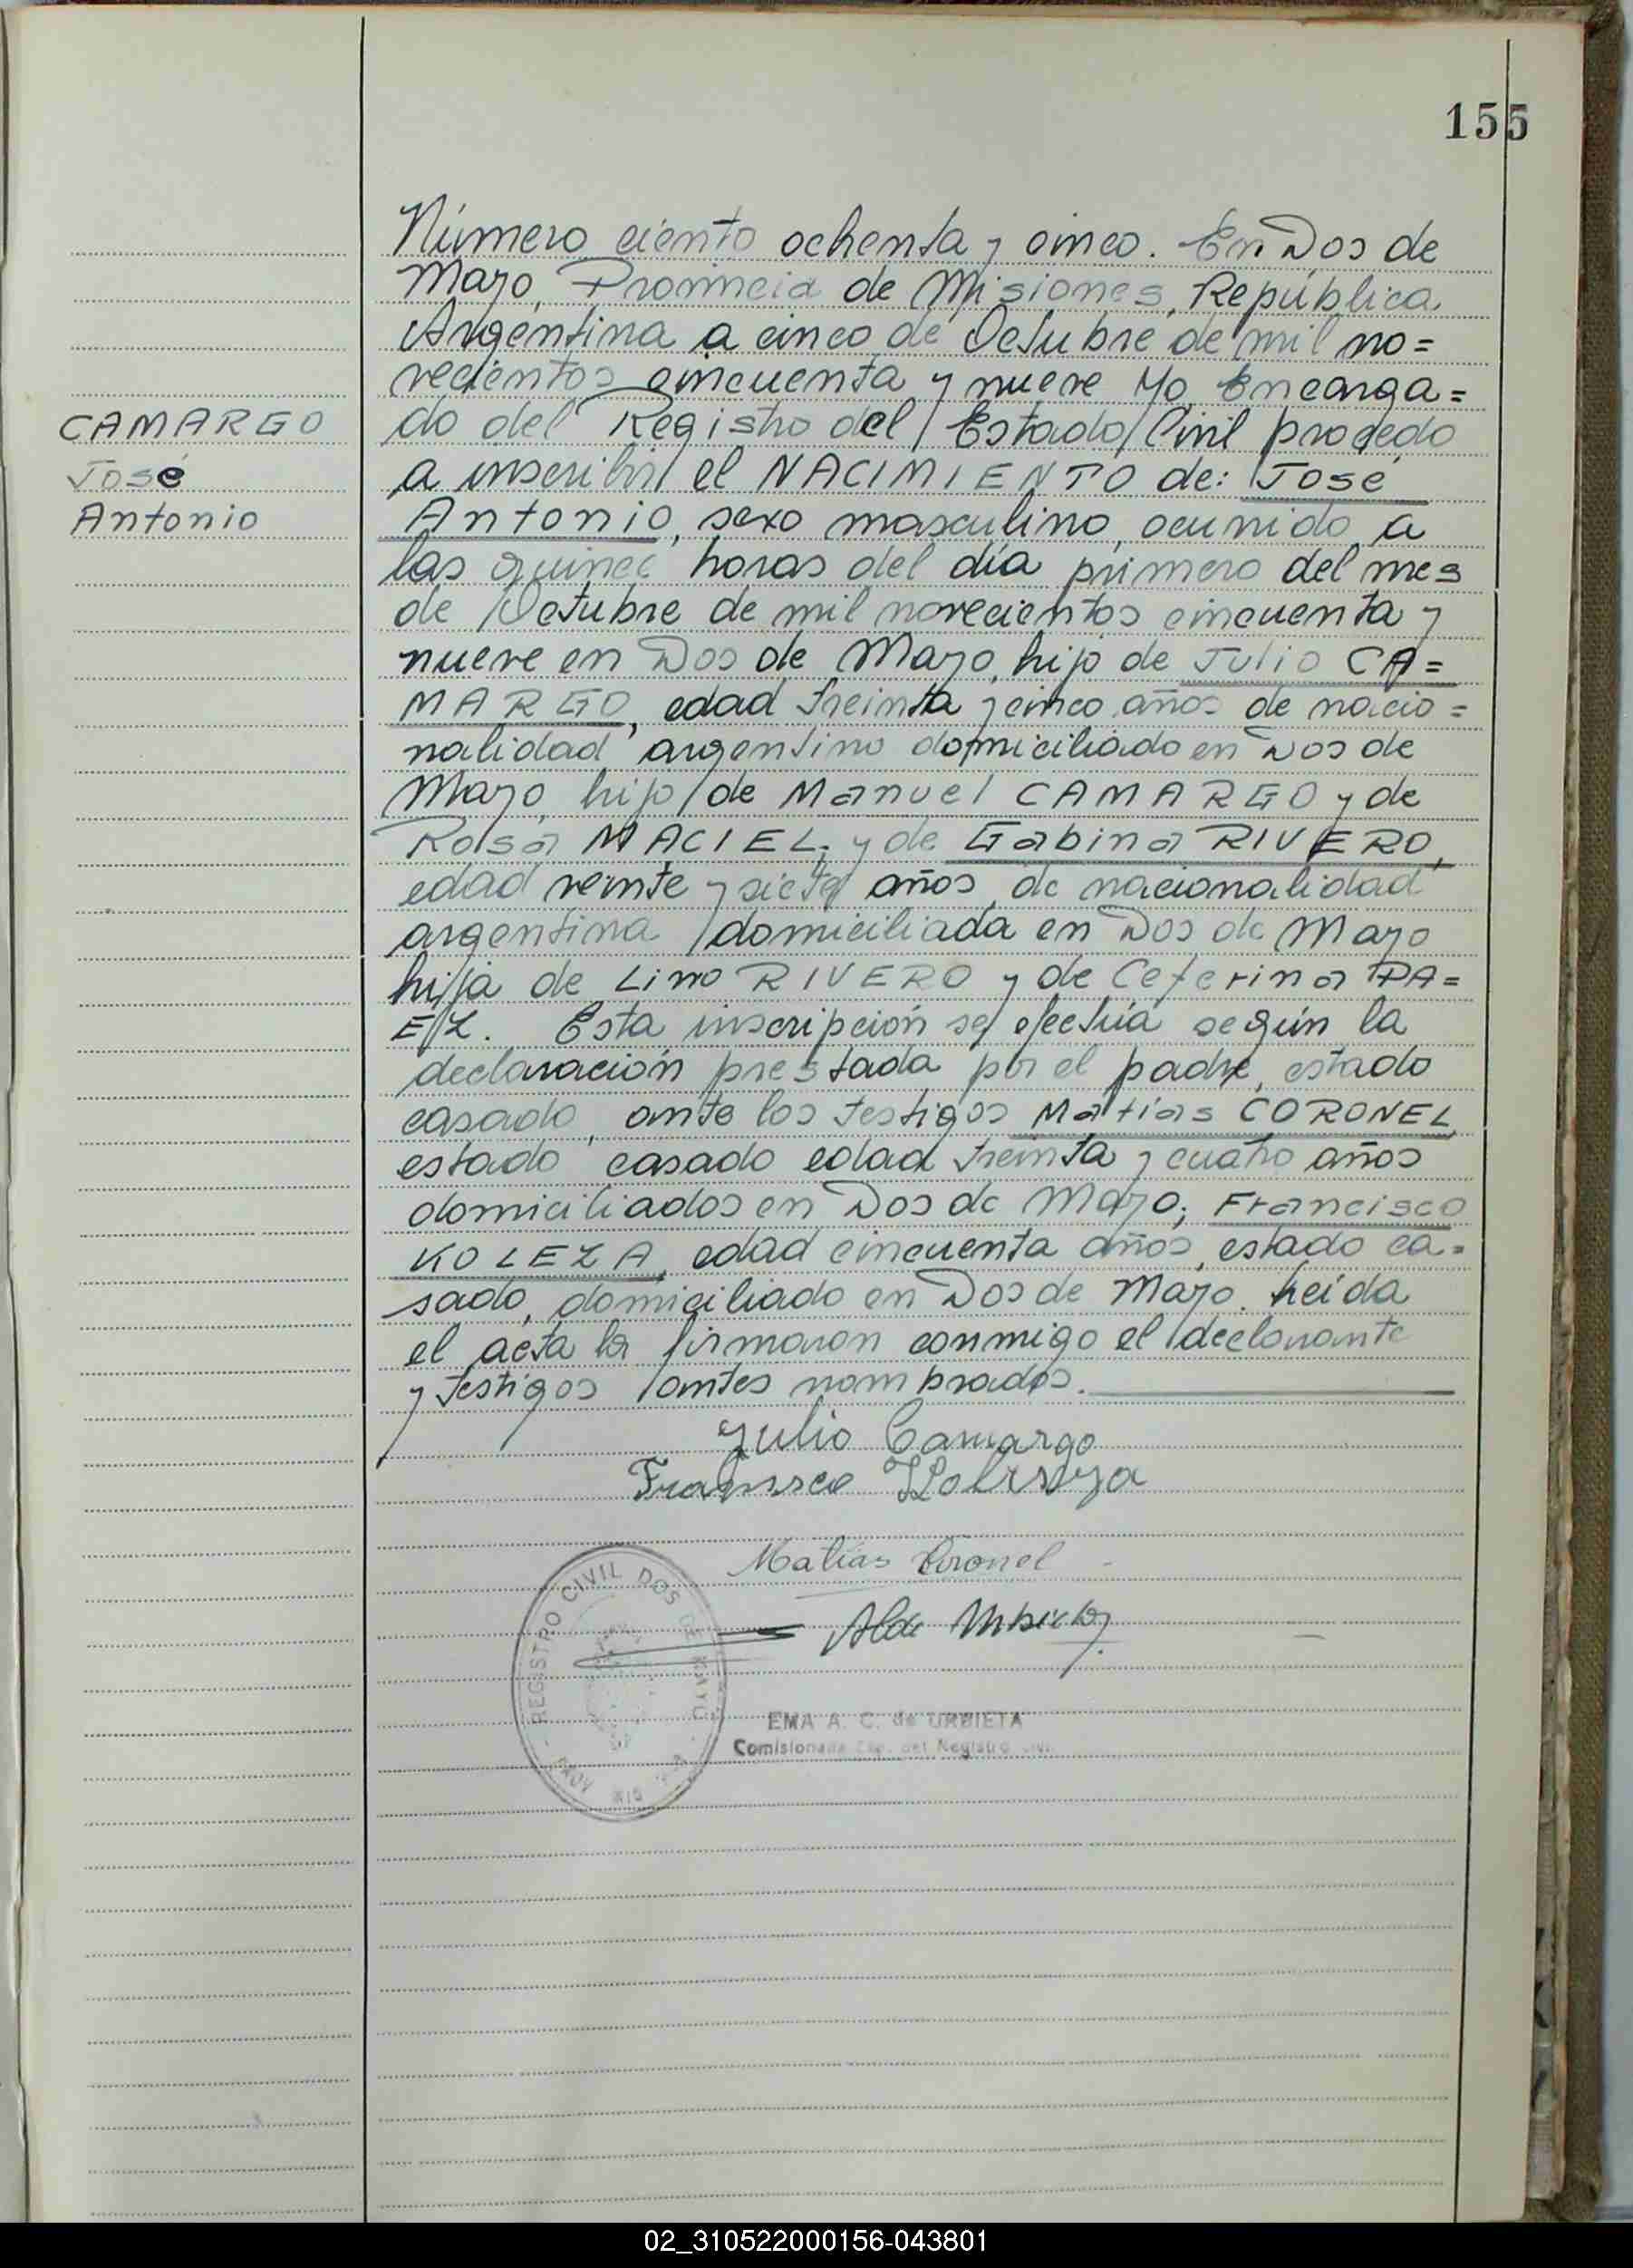 155
Número ciento ochenta y cinco. En Dos de
Mayo, Provincia de Misiones, República
Argentina a cinco de Octubre de mil no=
vecientos cincuenta y nueve Yo, Encarga=
do del Registro del Estado Civil procedo
a inscribir el NACIMIENTO de: José
Antonio, sexo masculino, ocurrido a
las quince horas del día primero del mes
de Octubre de mil novecientos cincuenta y
nueve en Dos de Mayo, hijo de Julio CA=
MARGO, edad treinta y cinco años de nacio=
nalidad argentino domiciliado en Dos de
Mayo, hijo de Manuel CAMARGO y de
Rosa MACIEL; y de Gabina RIVERO,
edad veinte y siete años, de nacionalidad
argentina domiciliada en Dos de Mayo
hija de Lino RIVERO y de Ceferina PA=
EZ. Esta inscripción se efectúa según la
declaración prestada por el padre, estado
casado, ante los testigos Matías CORONEL
estado casado edad treinta y cuatro años
domiciliados en Dos de Mayo; Francisco
KOLEZA, edad cincuenta años, estado ca=
sado, domiciliado en Dos de Mayo. Leída
el acta la firmaron conmigo el declarante
y testigos antes nombrados.
CAMARGO
José
Antonio
Julio Camargo
Matías Coronel
REGISTRO CIVIL DOS DE MAYO
EMA A. C. de URBIETA
Comisionada Esp. del Registro Civil
02_310522000156-043801